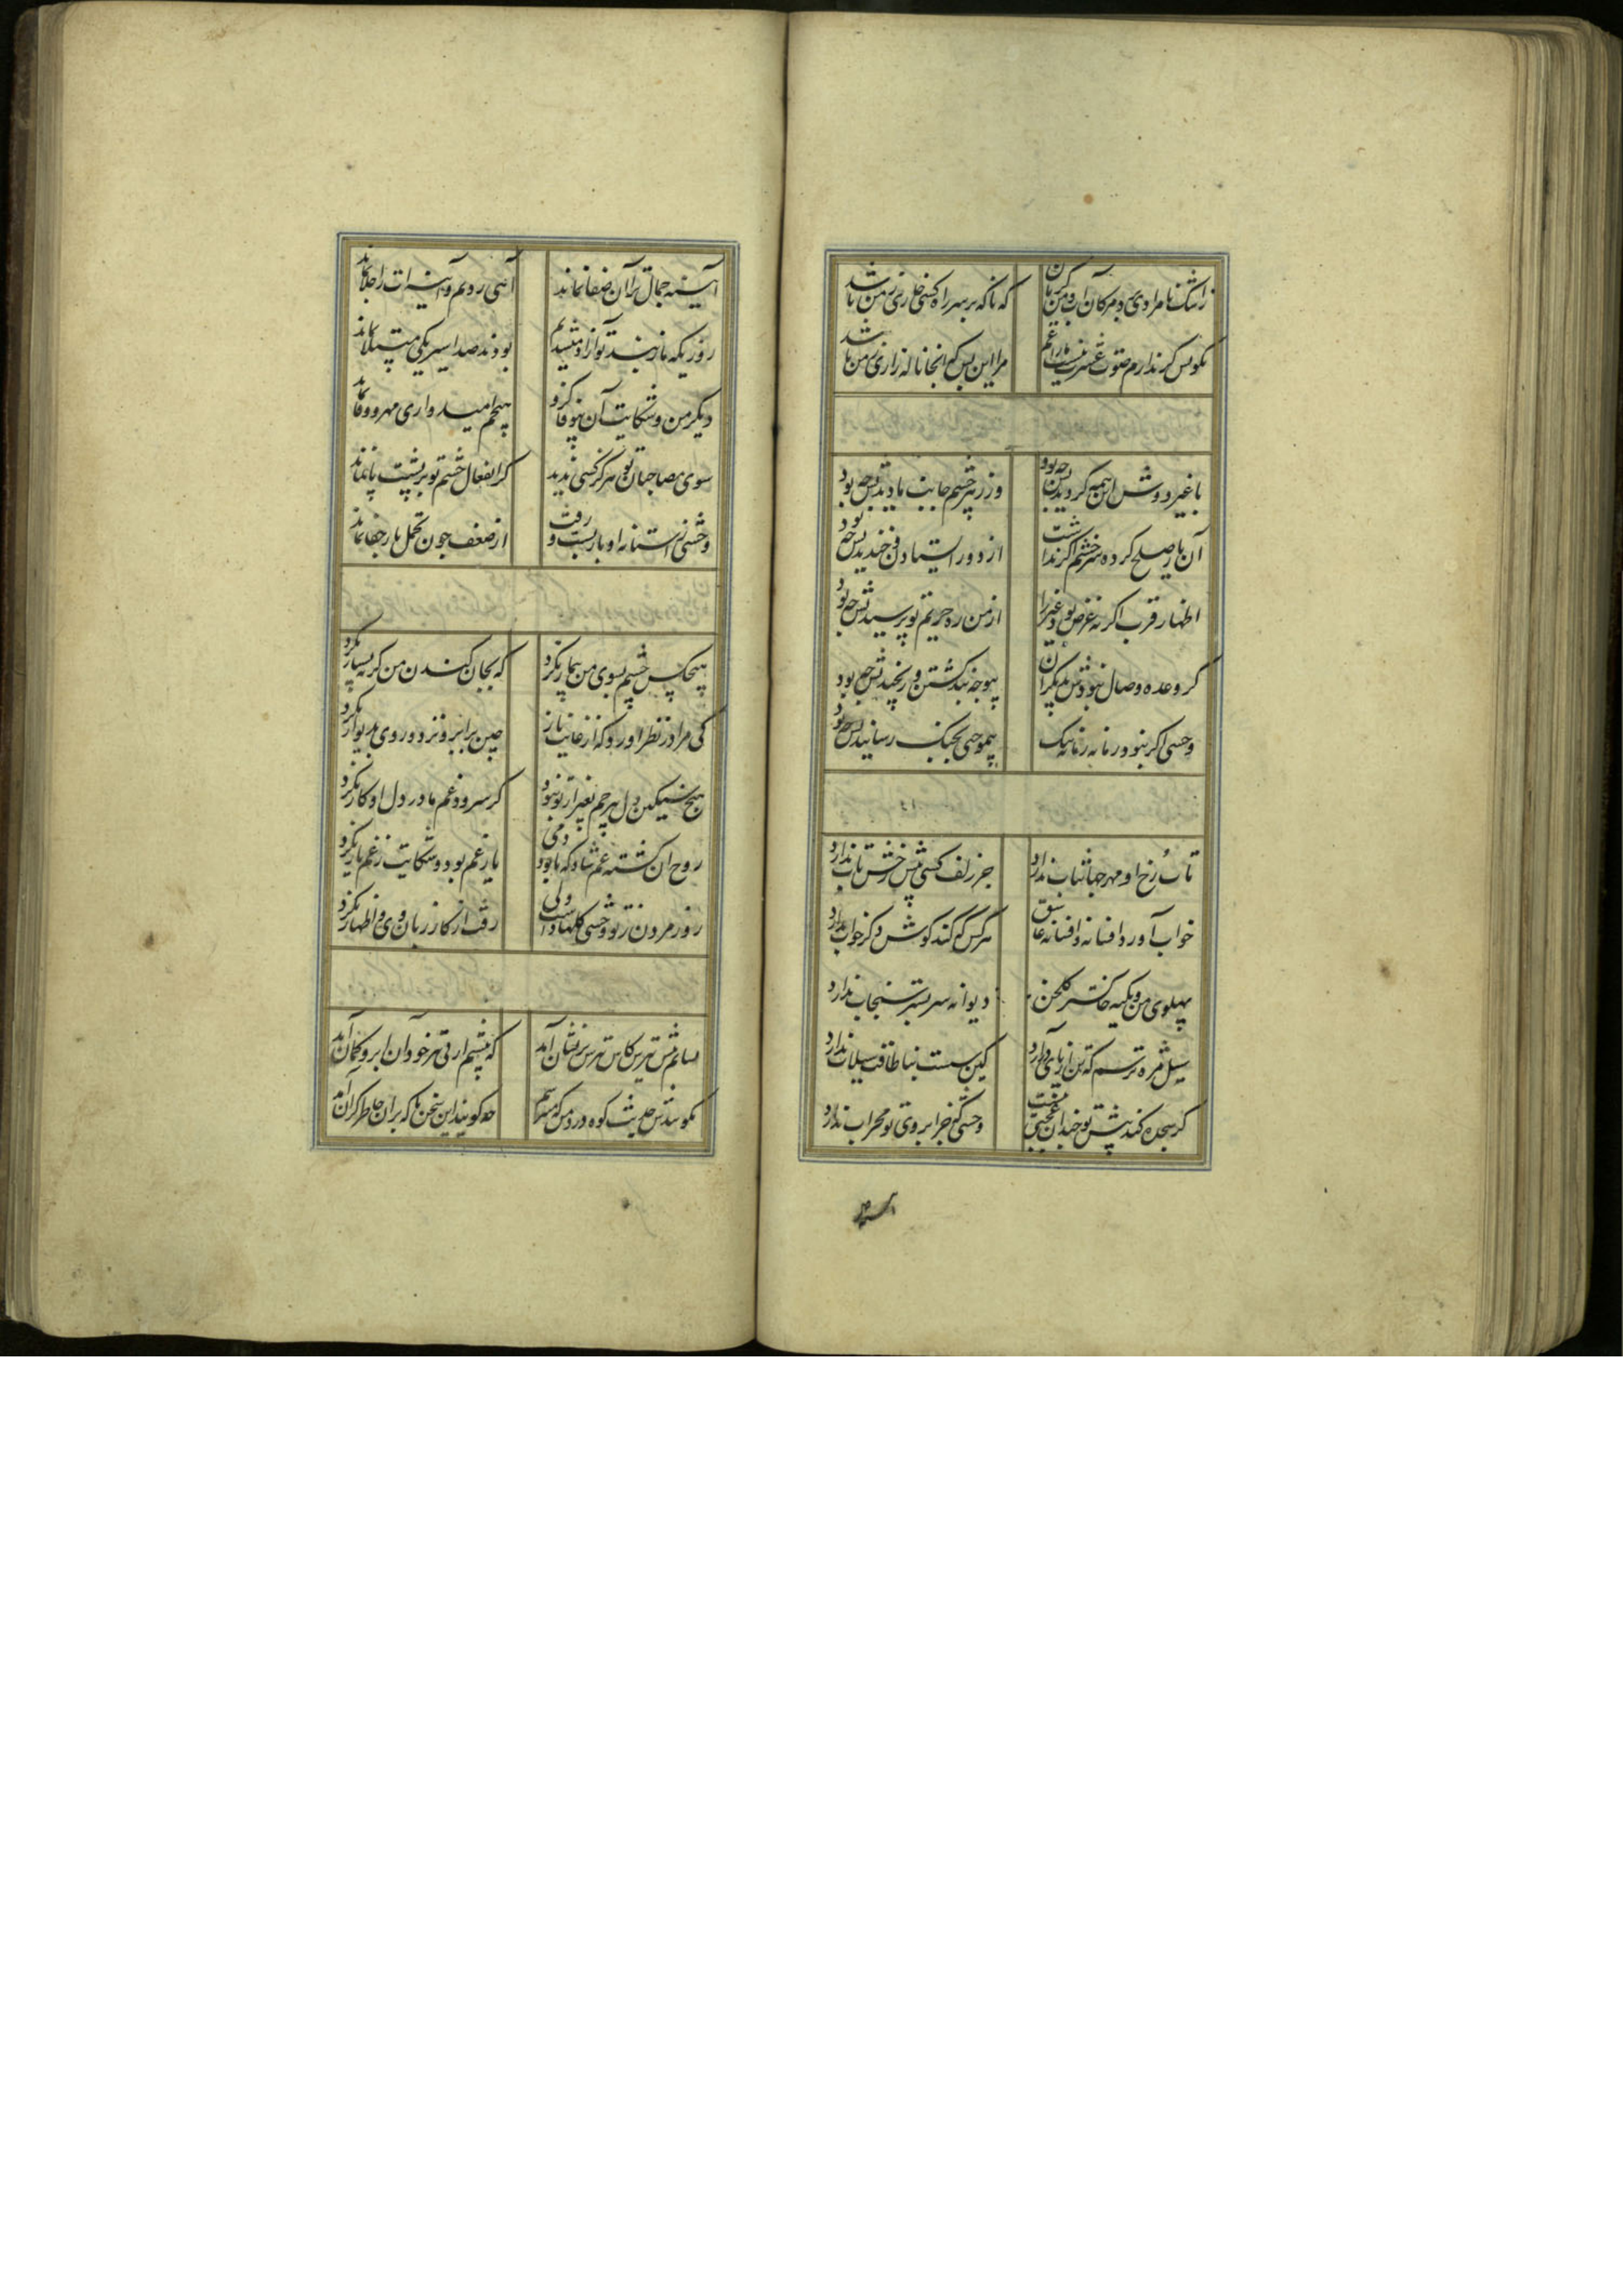 که ناگه بر سر راه کسی خاری ز من باشد
مرا این بس که آنجا ناله زاری ز من باشد
با غیر دوش این همه گردیدنش چه بود وز زهر چشم جانب ما دیدنش چه بود
آن یار صلح کرده سر خشم اگر نداشت از دور ایستادن و خندیدنش چه بود
اظهار قرب اگر نه غرض بود غیر را از من ره حریم تو پرسیدنش چه بود
گر وعده وصال نبودش به دیگران بیوجه تند گشتن و رنجیدنش چه بود
وحشی اگر نبود ز ما یار ما به تنگ بیموجبی بجنگ رسانیدنش چه بود
تاب رخ او مهر جهانتاب ندارد جز زلف کسی پیش رخش تاب ندارد
خواب آورد افسانه و افسانه عاشق هر کس که کند گوش دگر خواب ندارد
پهلوی من و تکیه خاکستر گلخن دیوانه سر بستر سنجاب ندارد
سیل مژه ترسم که تن از پای درآرد کین سست بنا طاقت سیلاب ندارد
گر سجده کند پیش تو چندان عجبی نیست وحشی که جز ابروی تو محراب ندارد
آئینه
آئینه جمال ترا آن صفا نماند آهی زدیم و آینه ات را جلا نماند
روزی که ما ز بند تو آزاد میشدیم بودند صد اسیر یکی مبتلا نماند
دیگر من و شکایت آن بیوفا کزو هیچم امیدواری مهر و وفا نماند
سوی مصاحبان تو هرگز کسی ندید کز انفعال چشم تو بر پشت پا نماند
وحشی ز آستانه او بار بست و رفت از ضعف چون تحمل بار جفا نماند
هیچکس چشم بسوی من بیمار نکرد که بجان کندن من گریه بسیار نکرد
کی مرا در نظر آورد که از غایت ناز چین بر ابرو نزد و روی بدیوار نکرد
هیچ سنگین دل بیرحم بغیر از تو نبود که سرود غم ما در دل او کار نکرد
روح آن کشته غم شاد که تا بود دمی یار غم بود و شکایت ز غم یار نکرد
روز مردن ز تو وحشی گله‌ها داشت ولی رفت از کار زبان وی و اظهار نکرد
که پیشم آن ابرو کمان آمد
که بر آن خاطر گران آمد